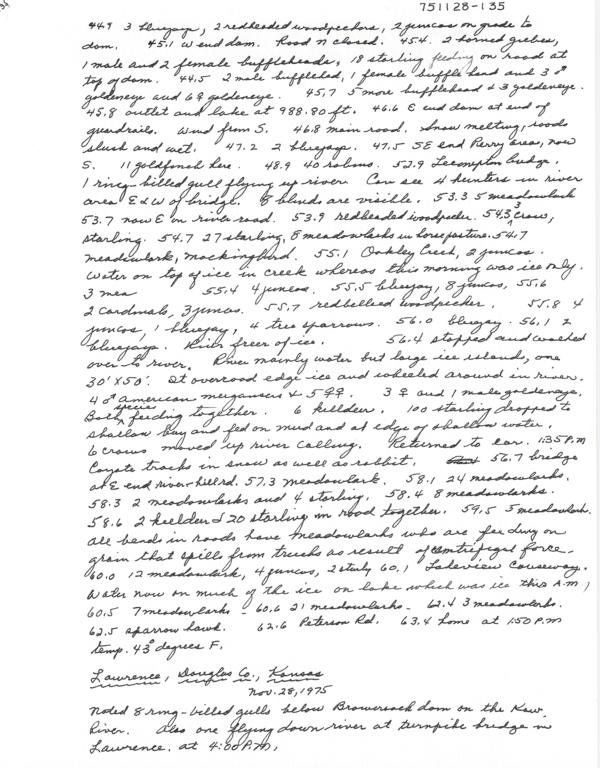 751128-135
44.9 3 bluejays, 2 redheaded woodpeckers, 2 juncos on grade to
dam. 45.1 W end dam. Road N closed. 45.4. 2 horned grebes,
1 male and 2 female buffleheads, 18 starling feeding on road at
top of dam. 44.5 2 male bufflehead, 1 female bufflehead and 3 ♂
goldeneye and 6 ♀ goldeneye. 45.7 5 more bufflehead & 3 goldeneye.
45.8 outlet and lake at 988.80 ft. 46.6 E end dam at end of
guardrails. Wind from S. 46.8 main road. Snow melting, roads
slush and wet. 47.2 2 bluejays. 47.5 SE end Perry area, now
S. 11 goldfinch here. 48.9 40 robins. 52.9 Lecompton bridge.
1 ring-billed gull flying up river. Can see 4 hunters in river
area E & W of bridge. 8 blinds are visible. 53.3 5 meadowlark
53.7 now E on river road. 53.9 redheaded woodpecker. 54.3 3 crow,
starling. 54.7 27 starling, 8 meadowlarks in horse pasture. 54.7
meadowlark, mockingbird. 55.1 Oakley Creek, 2 juncos.
Water on top of ice in creek whereas this morning was ice only.
3 men 55.4 4 juncos. 55.5 bluejay, 8 juncos, 55.6
2 cardinals, 3 juncos. 55.7 redbellied woodpecker. 55.8 4
juncos, 1 bluejay, 4 tree sparrows. 56.0 bluejay. 56.1 2
bluejays. River freer of ice. 56.4 stopped and walked
over to river. River mainly water but large ice island, one
30' X 50'. At overood edge ice and wheeled around in river.
4 ♂ american mergansers & 5 ♀♀. 3 ♀ and 1 male goldeneye.
Both species feeding together. 6 killdeer. 100 starling dropped to
shallow bay and fed on mud and at edge of shallow water.
6 crows moved up river calling. Returned to car. 1:35 P.M
Coyote tracks in snow as well as rabbit. 56.7 bridge
at E end river-hill rd. 57.3 meadowlark. 58.1 24 meadowlarks.
58.3 2 meadowlarks and 4 starling. 58.4 8 meadowlarks.
58.6 2 keelder & 20 starling in road together. 59.5 5 meadowlark.
All bends in roads have meadowlarks who are feeding on
grain that spills from trucks as result of centrifigal force.
60.0 12 meadowlark, 4 juncos, 2 starlg 60.1 Lakeview Causeway.
Water now on much of the ice on lake which was ice this A.M.)
60.5 7 meadowlarks - 60.6 21 meadowlarks - 62.4 3 meadowlarks.
62.5 sparrow hawk. 62.6 Peterson Rd. 63.4 home at 1:50 P.M
temp. 43° degrees F.
Lawrence, Douglas Co., Kansas
Nov. 28, 1975
Noted 8 ring-billed gulls below Bowersock dam on the Kaw
River. Also one flying down river at turnpike bridge in
Lawrence. at 4:00 P.M.